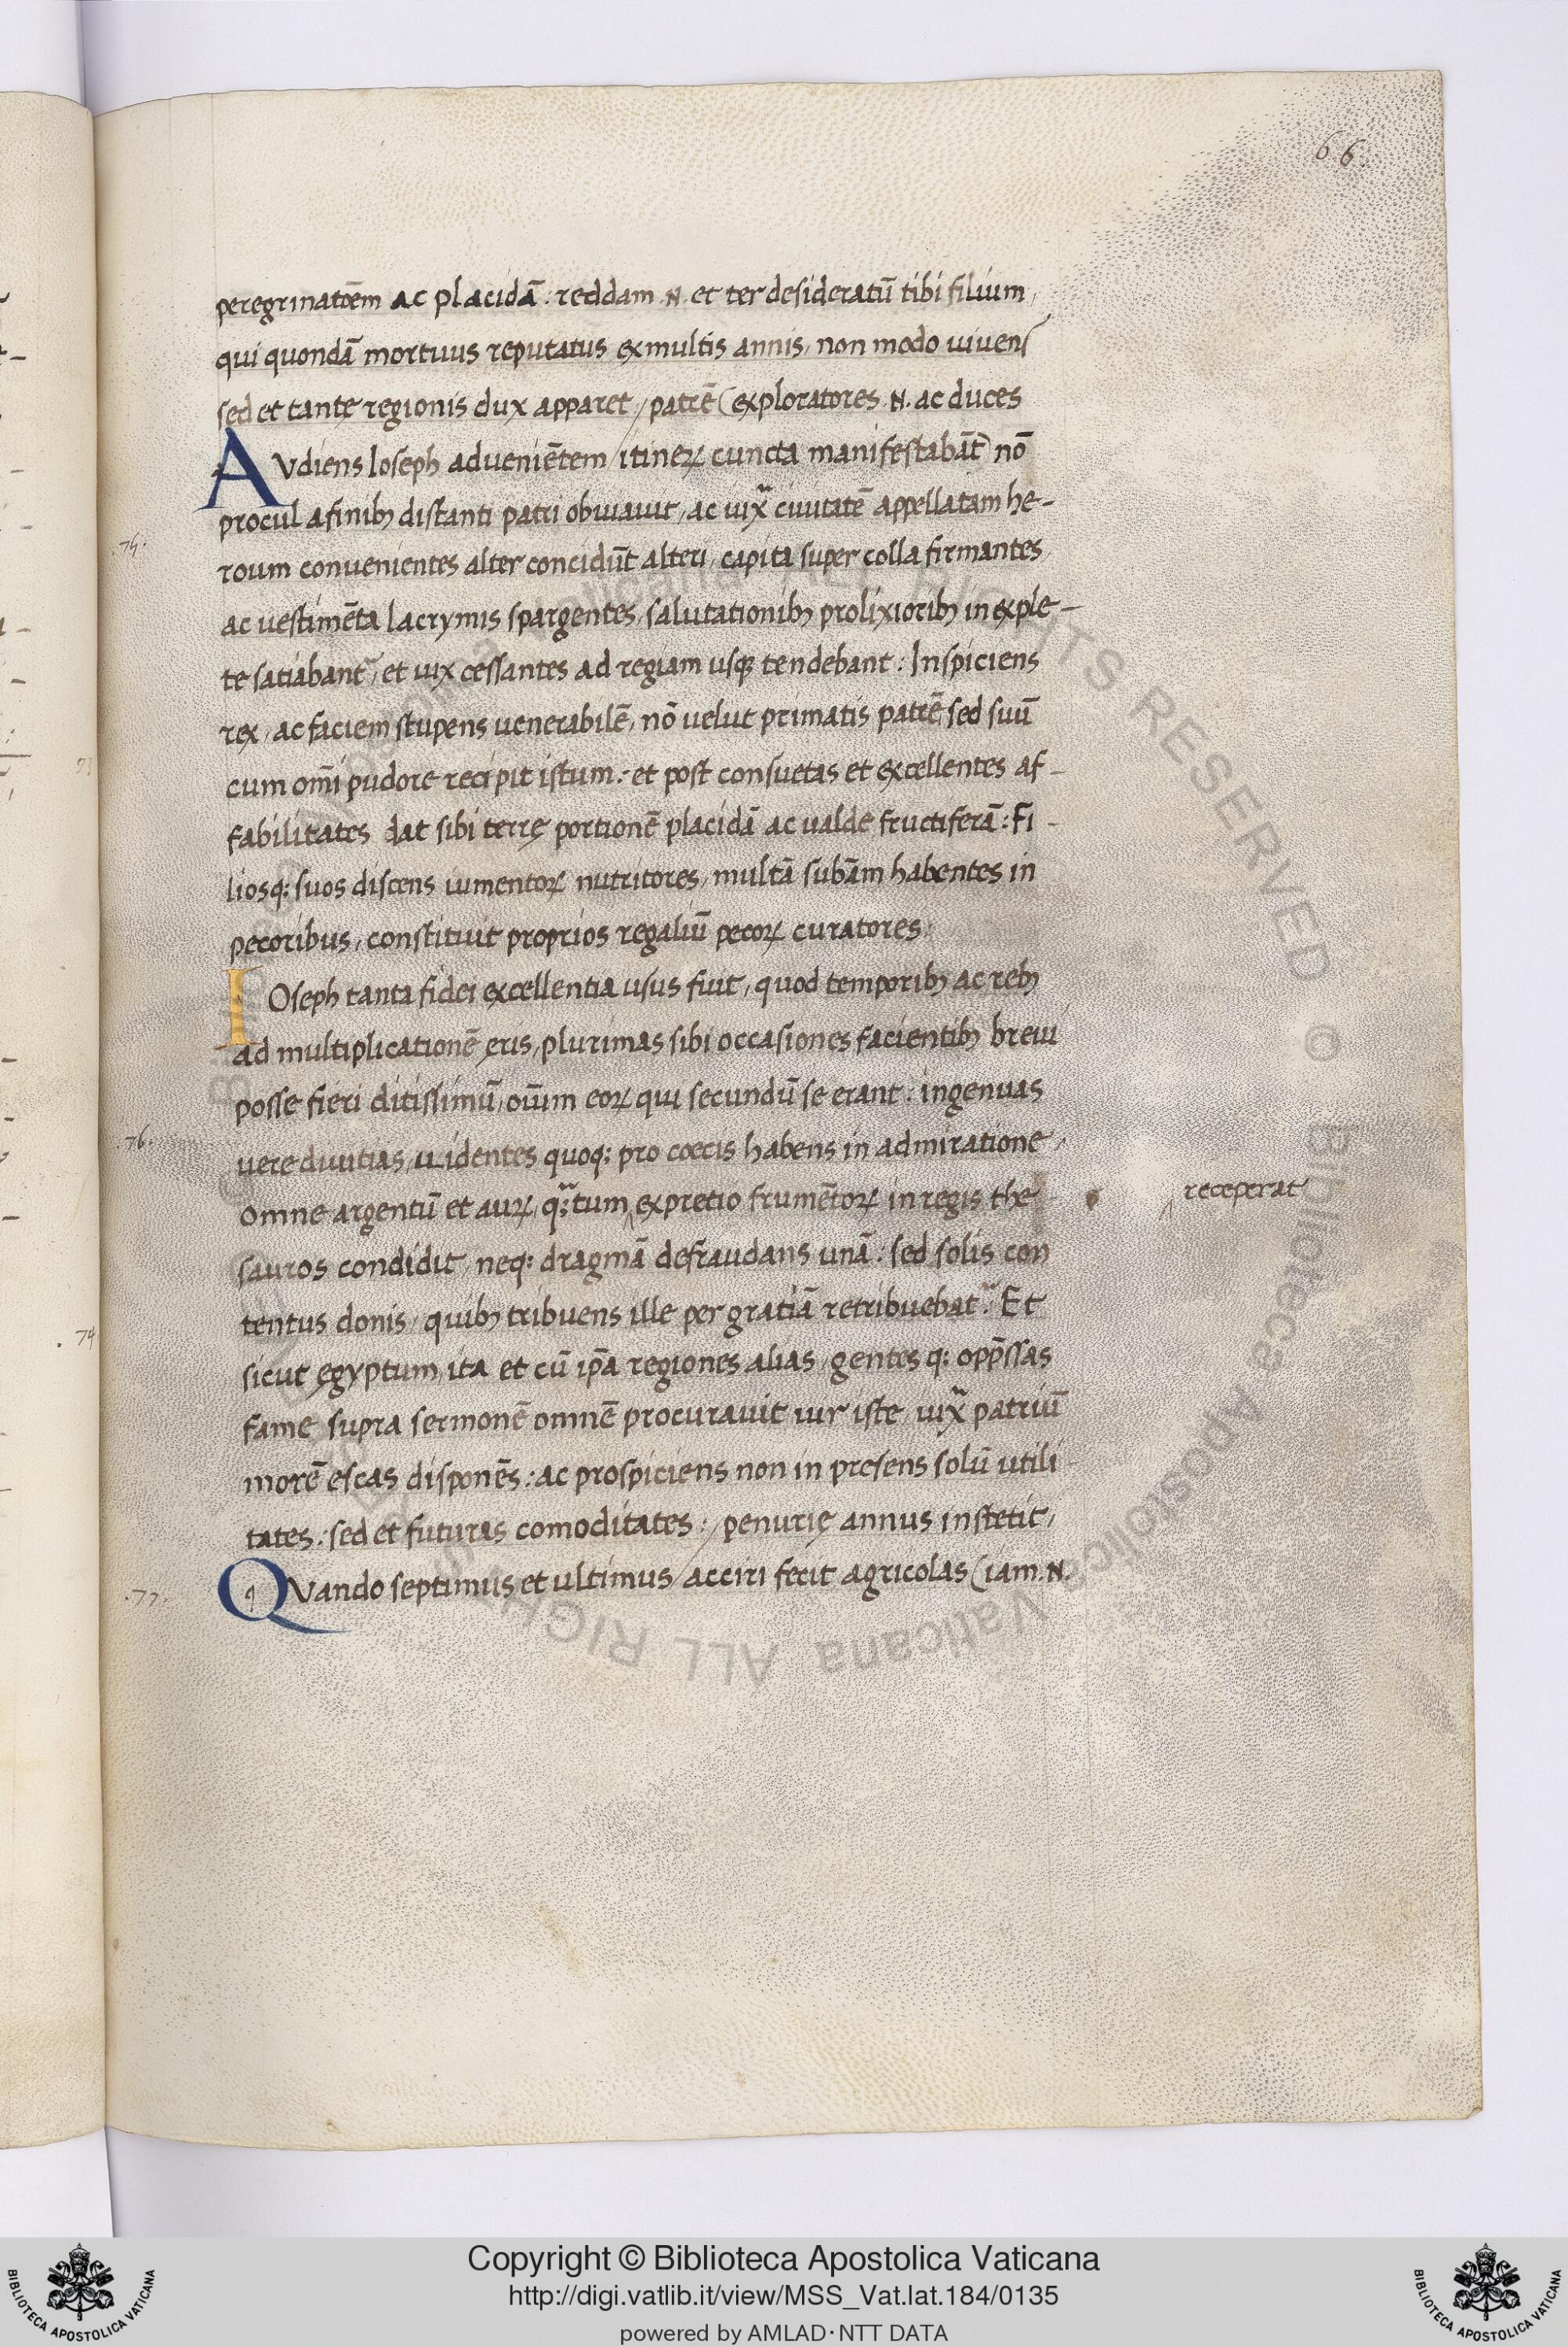 66
peregrinatōem ac placidā: reddam .N. et ter desideratū tibi filium,
qui quondā mortuus reputatus ex multis annis, non modo uivens
sed et tantę regionis dux apparet / patrē (exploratores .N. ac duces
AVdiens Ioseph adueniētem / itineꝝ cuncta manifestabāt) nō
procul a finibꝫ distanti patri obuiauit, ac iuxͣ ciuitatē appellatam he-
.75.
roum conuenientes alter concidūt alteri, capita super colla firmantes
ac uestimēta lacrymis spargentes, salutationibꝫ prolixioribꝫ inexple-
te satiabantˀ, et uix cessantes ad regiam usqꝫ tendebant: Inspiciens
rex, ac faciem stupens uenerabilē, nō velut primatis patrē, sed suū
cum om̄i pudore recipit istum: et post consuetas et excellentes af-
fabilitates dat sibi terrę portionē placidā ac ualde fructiferā: Fi-
liosq: suos discens iumentoꝝ nutritores, multā subāam habentes in
pecoribus, constituit proprios regaliū pecoꝝ curatores.
IOseph tanta fidei excellentia usus fuit, quod temporibꝫ ac rebꝫ
ad multiplicationē ęris, plurimas sibi occasiones facientibꝫ breui
posse fieri ditissimū, oīum eoꝝ qui secundū se erant: ingenuas
.76.
uere diuitias, uidentes quoq: pro coecis habens in admiratione,
omne argentū et auꝝ, q:ͣtum ‸ ex pretio frumētoꝝ in regis the
‸ receperat
sauros condidit, neq: dragmā defraudans unā: sed solis con
tentus donis, quibꝫ tribuens ille per gratiā retribuebatˀ. Et
.74
sicut ęgyptum, ita et cū ip̄a regiones alias, gentes q: opp̄ssas
fame supra sermonē omnē procurauit uir iste, iuxͣ patriū
morē escas disponēs: ac prospiciens non in presens solū utili
tates: sed et futuras comoditates: / penurię annus instetit,
.77.
QVando septimus et ultimus / acciri fecit agricolas (iam .N.
Copyright © Biblioteca Apostolica Vaticana
http://digi.vatlib.it/view/MSS_Vat.lat.184/0135
powered by AMLAD·NTT DATA
BIBLIOTECA APOSTOLICA VATICANA
BIBLIOTECA APOSTOLICA VATICANA